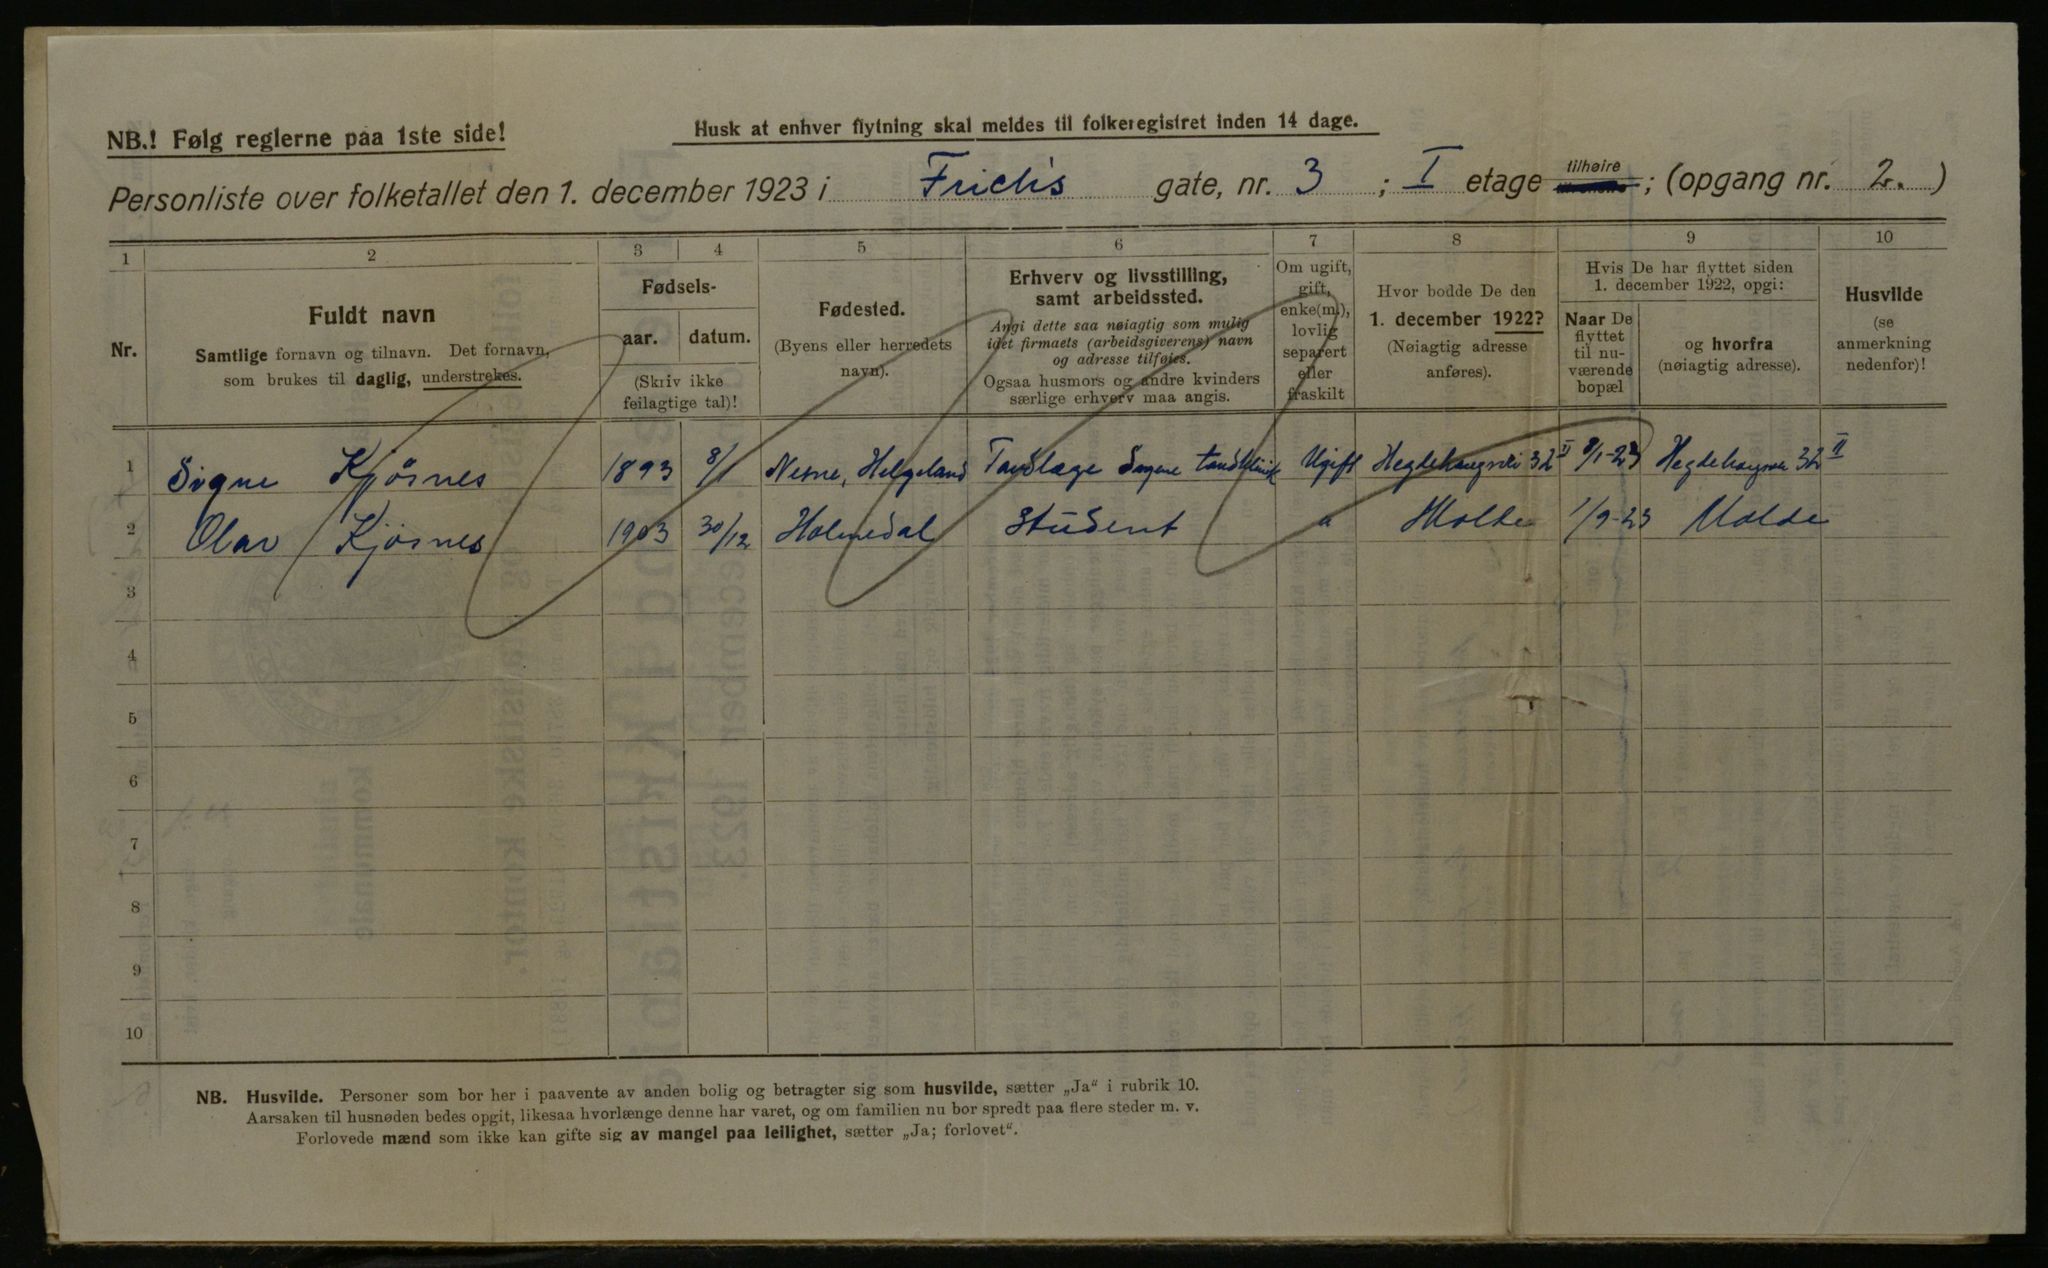 NB.! Følg reglerne paa 1ste side!
Husk at enhver flytning skal meldes til folkeregistret inden 14 dage.
Personliste over folketallet den 1. december 1923 i Frichs gate, nr. 3 ; I etage tilhøire ; (opgang nr. 2. )
1 2 3 4 5 6 7 8 9 10
Nr.
Fuldt navn
Samtlige fornavn og tilnavn. Det fornavn,
som brukes til daglig, understrekes.
Fødsels-
aar. datum.
(Skriv ikke
feilagtige tal)!
Fødested.
(Byens eller herredets
navn).
Erhverv og livsstilling,
samt arbeidssted.
Angi dette saa nøiagtig som mulig
idet firmaets (arbeidsgiverens) navn
og adresse tilføies.
Ogsaa husmors og andre kvinders
særlige erhverv maa angis.
Om ugift,
gift,
enke(m.),
lovlig
separert
eller
fraskilt
Hvor bodde De den
1. december 1922?
(Nøiagtig adresse
anføres).
Hvis De har flyttet siden
1. december 1922, opgi:
Naar De
flyttet
til nu-
værende
bopæl
og hvorfra
(nøiagtig adresse).
Husvilde
(se
anmerkning
nedenfor)!
1 Signe Kjösnes 1893 8/1 Nesne, Helgeland Tandlæge Sagene tandklinik Ugift Hegdehaugsvei 32 II 8/1-23 Hegdehaugsvei 32 II
2 Olav Kjösnes 1903 30/12 Holmedal Student " Molde 1/9-23 Molde
3
4
5
6
7
8
9
10
NB. Husvilde. Personer som bor her i paavente av anden bolig og betragter sig som husvilde, sætter „Ja“ i rubrik 10.
Aarsaken til husnøden bedes opgit, likesaa hvorlænge denne har varet, og om familien nu bor spredt paa flere steder m. v.
Forlovede mænd som ikke kan gifte sig av mangel paa leilighet, sætter „Ja; forlovet“.